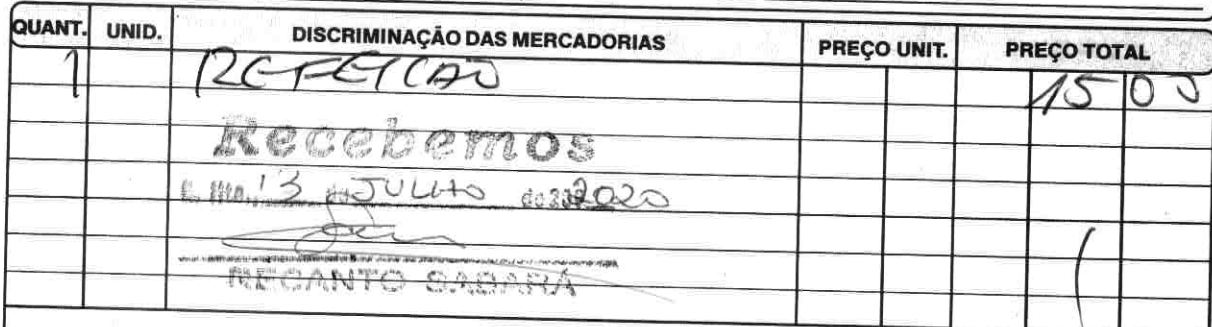 QUANT. UNID. DISCRIMINAÇÃO DAS MERCADORIAS PREÇO UNIT. PREÇO TOTAL
1 REFEICAO 15 00
Recebemos
13 de JULHO de 2020
RECANTO SABARÁ